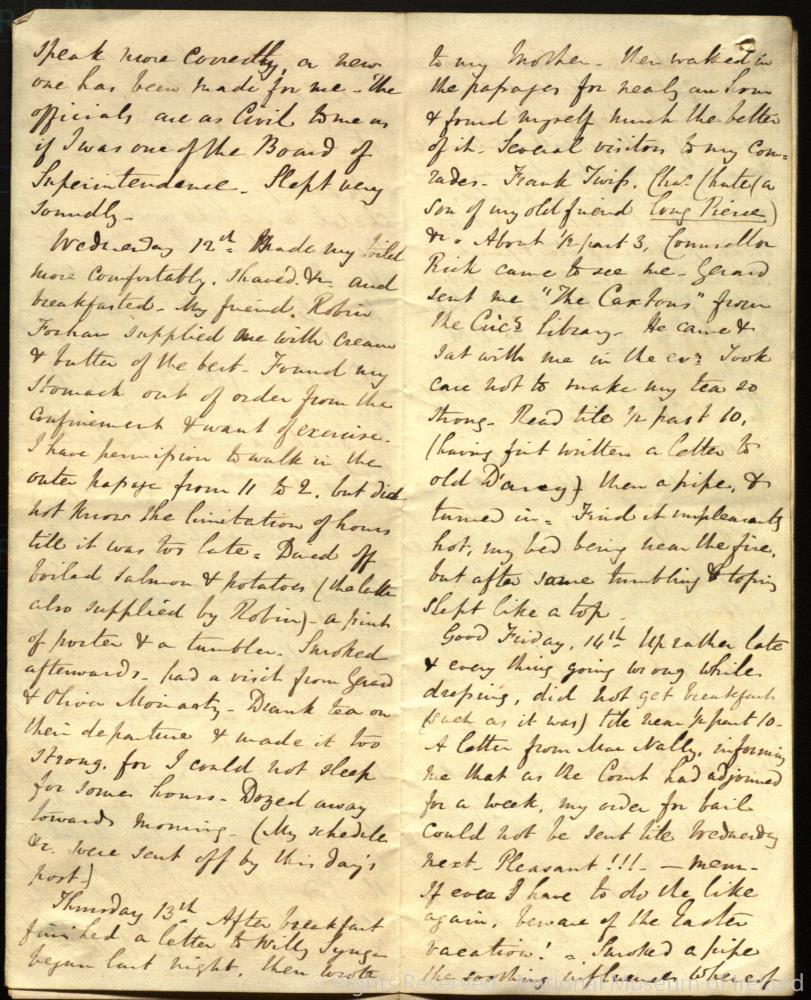 speak more correctly, a new
one has been made for me - The
officials are as Civil to me as
if I was one of the Board of
Superintendence. Slept very
soundly -
Wednesday 12th = Made my toilet
more comfortably. shaved. &c. and
breakfasted - My friend. Robin
supplied me with cream
& butter of the best - Found my
Stomach out of order from the
confinement & want of exercise.
I have permission to walk in the
outer passage from 11 to 2. but did
not know the limitation of hours
till it was too late = Dined off
boiled salmon & potatoes (the latter
also supplied by Robin) - a pint
of porter & a tumbler. Smoked
afterwards - had a visit from Gerard
& Oliver Moriarty - Drank tea on
their departure & made it too
strong. for I could not sleep
for some hours - Dozed away
towards morning - (My schedule
&c. were sent off by this day's
post)
Thursday 13th After breakfast
finished a letter to Willy Synge
begun last night. then wrote
to my Mother - then walked in
the passages for nearly an hour
& found myself much the better
of it - Several visitors to my com=
rades - Frank Twiss, Chas. Chute (a
son of my old friend Long Pierce)
&c. About 1/2 past 3, Counsellor
Rick came to see me - Gerard
sent me "The Caxtons" from
the Circg Library - He came &
sat with me in the evg Took
care not to make my tea so
strong - Read till 1/2 past 10,
(having first written a letter to
old D'arcy) then a pipe, &
turned in = Find it unpleasantly
hot, my bed being near the fire,
but after some tumbling & tossing
slept like a top.
Good Friday, 14th Up rather late
& every thing going wrong while
dressing, did not get breakfast
(such as it was) till near 1/2 past 10 -
A letter from Mac Nally, informing
me that as the Court had adjourned
for a week, my order for bail
could not be sent till Wednesday
next - Pleasant !!! - - mem -
If ever I have to do the like
again, beware of the Easter
vacation! = Smoked a pipe
the soothing influences whereof
© Rights Reserved - National Museum of Ireland